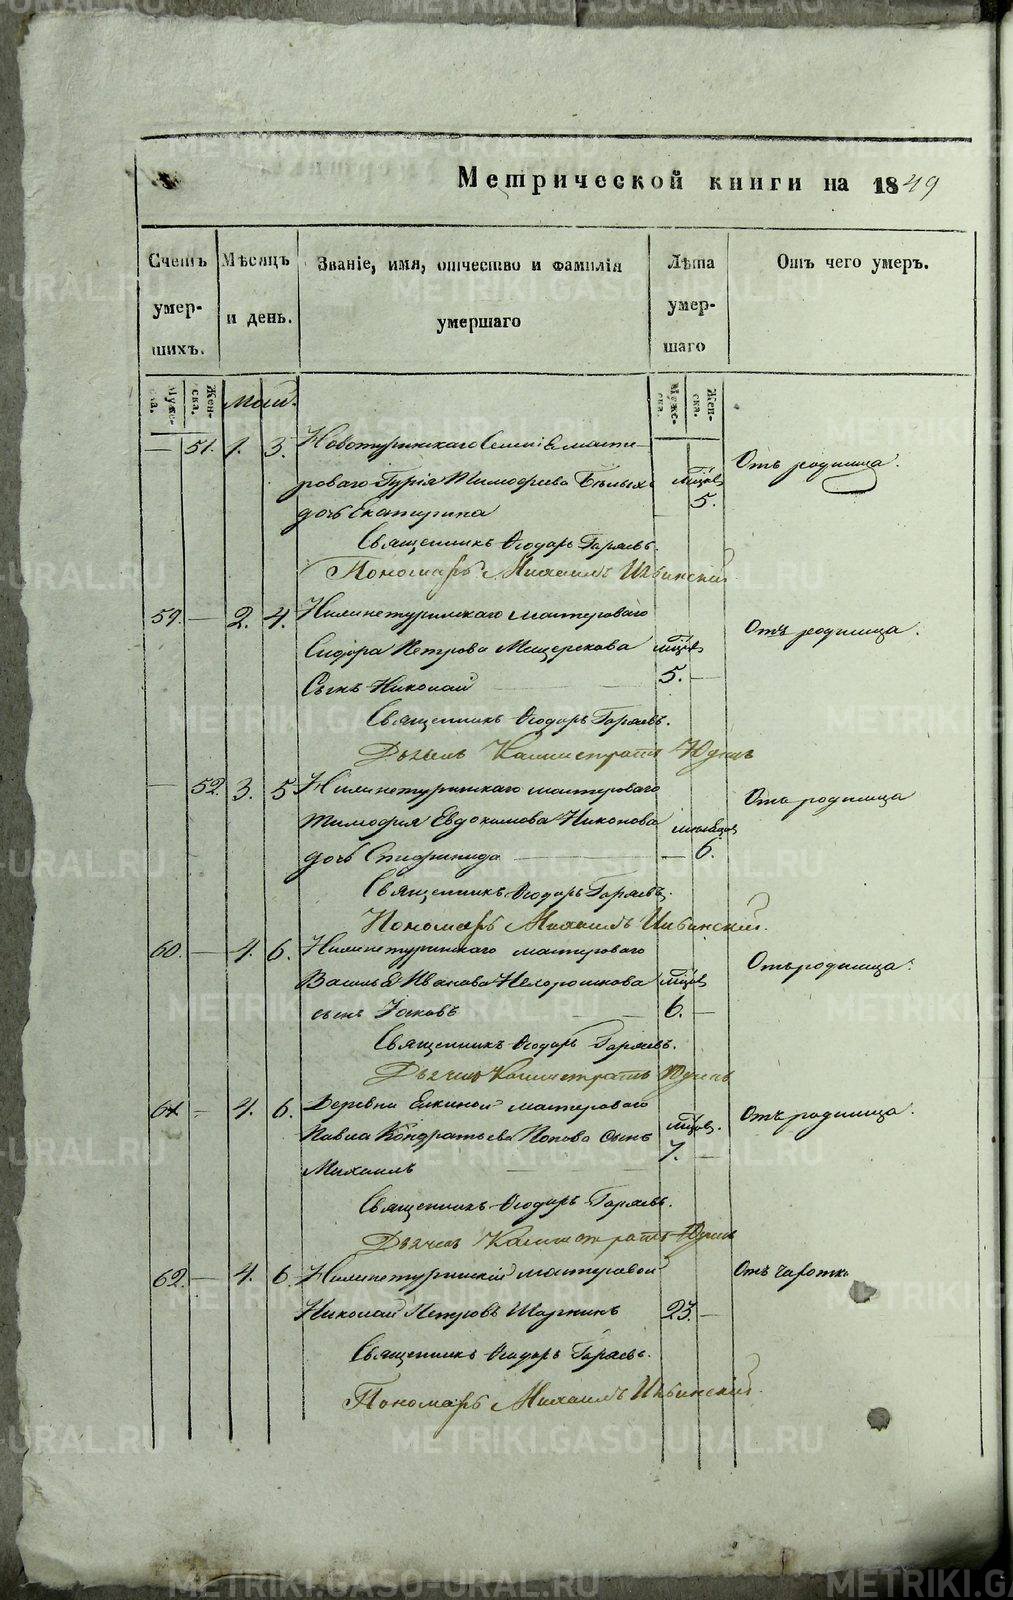 Метрической книги на 1849
Счетъ умершихъ.
Мѣсяцъ и день.
Званіе, имя, отчество и фамилія умершаго
Лѣта умершаго
Отъ чего умеръ.
Муже-ска.
Жен-ска.
Май.
Муже-ска.
Жен-ска.
— 51. 1. 3. Новотуринскаго Селенія масте-
роваго Гурія Тимофеева Бѣлыхъ мѣсяцовъ Отъ родимца.
дочь Екатерина 5.
Священникъ Ѳеодоръ Гаряевъ.
Пономарь Михаилъ Ильинскій
59. — 2. 4. Нижнетуринскаго мастероваго
Сидора Петрова Мещерекова мѣсяцовъ Отъ родимца.
Сынъ Николай 5. —
Священникъ Ѳеодоръ Гаряевъ.
Дьячекъ Каллистратъ Юдинъ
— 52. 3. 5 Нижнетуринскаго мастероваго
Тимофея Евдокимова Никонова мѣсяцовъ Отъ родимца
дочь Спиридонида — 6.
Священникъ Ѳеодоръ Гаряевъ.
Пономарь Михаилъ Ильинскій.
60. — 4. 6. Нижнетуринскаго мастероваго
Василья Иванова мѣсяцовъ Отъ родимца.
сынъ Іаковъ 6. —
Священникъ Ѳеодоръ Гаряевъ.
Дьячекъ Каллистратъ Юдинъ
61 — 4. 6. Деревни Елкиной мастероваго
Павла Кондратьева Попова сынъ мѣсяцов. Отъ родимца.
Михаилъ 7. —
Священникъ Ѳеодоръ Гаряевъ.
Дьячекъ Каллистратъ Юдинъ
62. — 4. 6 Нижнетуринскій мастеровой Отъ чахотки
Николай Петровъ 23. —
Священникъ Ѳеодоръ Гаряевъ.
Пономарь Михаилъ Ильинскій.
METRIKI.GASO-URAL.RU